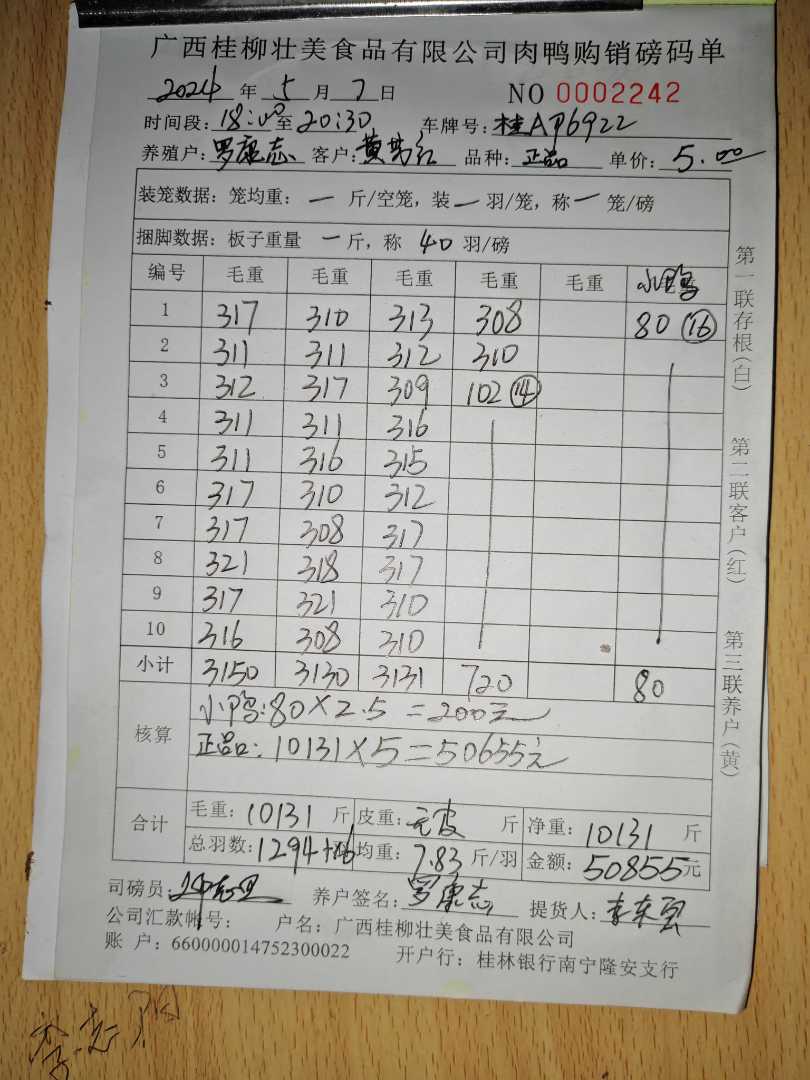 广西桂柳壮美食品有限公司肉鸭购销磅码单
2024年5月7日 NO 0002242
时间段:18:00至20:30 车牌号:桂AP6922
养殖户:罗康志 客户:黄 红 品种:正品 单价:5.00
装笼数据:笼均重:一斤/空笼,装一羽/笼,称一笼/磅
捆脚数据:板子重量一斤,称40羽/磅
编号 毛重 毛重 毛重 毛重 毛重 小鸭
1 317 310 313 308 80 (16)
2 311 311 312 310
3 312 317 309 102 (14)
4 311 311 316
5 311 316 315
6 317 310 312
7 317 308 317
8 321 318 317
9 317 321 310
10 316 308 310
小计 3150 3130 3131 720 80
核算
小鸭:80×2.5=200元
正品:10131×5=50655元
合计
毛重:10131斤 皮重:无皮斤 净重:10131斤
总羽数:1294+16 均重:7.83斤/羽 金额:50855元
司磅员: 养户签名:罗康志 提货人:李东
公司汇款帐号: 户名:广西桂柳壮美食品有限公司
账 户:660000014752300022 开户行:桂林银行南宁隆安支行
第一联存根(白)
第二联客户(红)
第三联养户(黄)